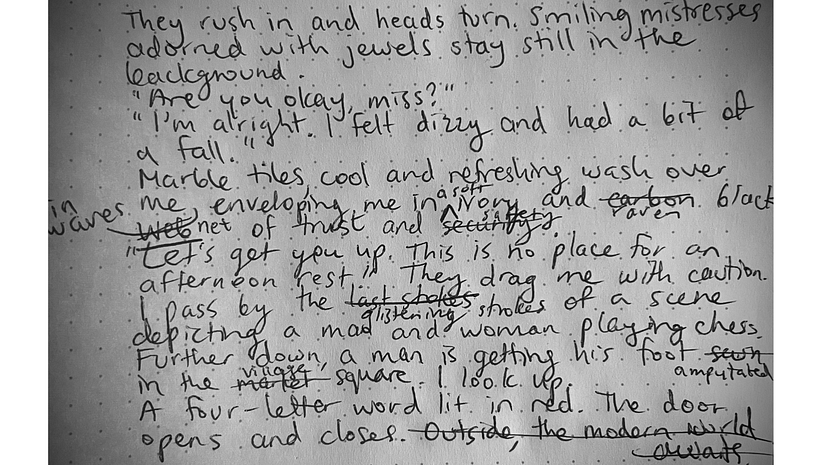 They rush in and heads turn. Smiling mistresses
adorned with jewels stay still in the
background.
"Are you okay, miss?"
"I'm alright. I felt dizzy and had a bit of
a fall."
Marble tiles cool and refreshing wash over
in waves
me, enveloping me in a soft ivory and carbon raven black
Web net of trust and security safety.
"Let's get you up. This is no place for an
afternoon rest." They drag me with caution.
I pass by the last strokes glistening strokes of a scene
depicting a mad and woman playing chess.
Further down, a man is getting his foot sewn amputated
in the market village square. I look up.
A four-letter word lit in red. The door
opens and closes. Outside, the modern world
awaits